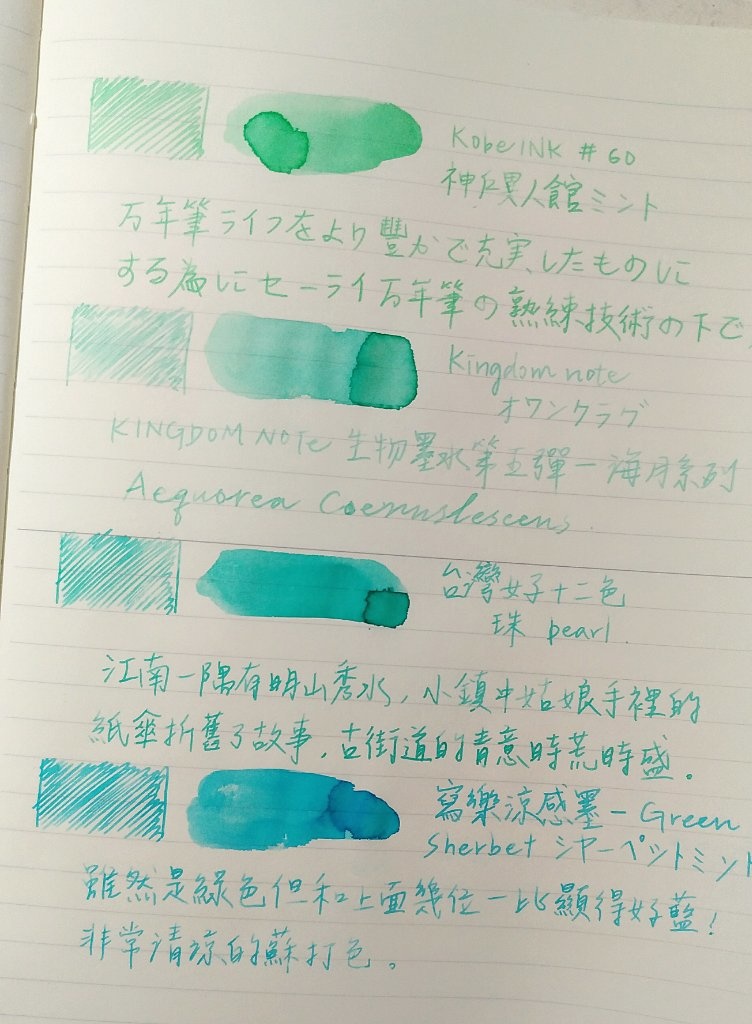 KobeINK #60
神戸異人館ミント
万年筆ライフをより豊かで充実したものに
する為にセーライ万年筆の熟練技術の下で
Kingdom note
オワンクラゲ
KINGDOM NOTE 生物墨水第五彈-海月系列
Aequorea Coerulescens.
台灣女子十二色
珠 pearl.
江南一隅有明山秀水,小鎮中姑娘手裡的
紙傘折舊了故事,古街道的青意時荒時盛。
寫樂涼感墨-Green
Sherbet シャーペットミント
雖然是綠色但和上面幾位一比顯得好藍!
非常清涼的蘇打色。